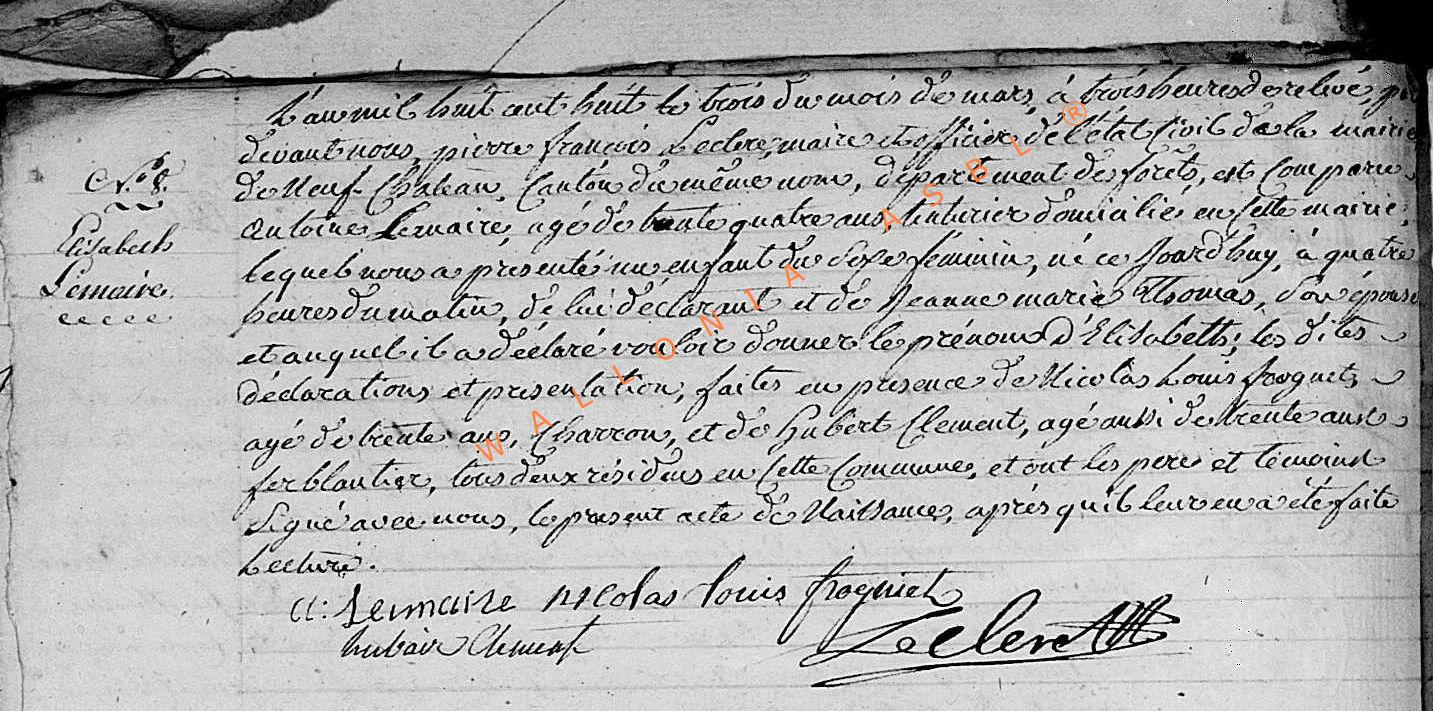 N.° 8.
Elisabeth
Lemaire
L'an mil huit cent huit le trois du mois de mars, à trois heures de relevé, par
devant nous, pierre françois Leclerc, maire et officier de l'état Civil de la mairie
de Neuf-Chateau, Canton du même nom, département de forêts, est Comparu
Antoine Lemaire, agé de trente quatre ans, tinturier domicilié en Cette mairie,
lequel nous a presenté un enfant du Sexe féminin, né ce Jourd'huy, à quatre
heures du matin, de lui déclarant et de Jeanne marie Thomas, Son épouse
et auquel il a déclaré vouloir donner le prénom d'Elisabeth; les dites
déclarations et presentation, faites en presence de Nicolas Louis frognet,
agé de trente ans, Charron, et de hubert Clement, agé aussi de trente ans
ferblantier, tous deux résidens en Cette Commune, et ont les pere et témoins
Signé avec nous, le present acte de Naissance, après qu'il leur en a été faite
Lecture.
a: Lemaire nicolas louis frogniet
hubair Clement
Leclerc
WALLONIA ASBL ®